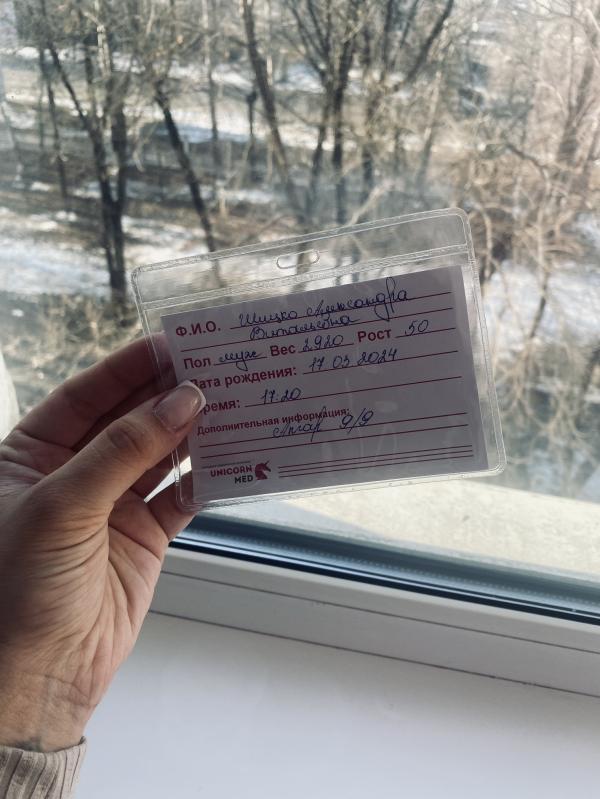 Ф.И.О. Шицко Александра
Витальевна
Пол муж Вес 2920 Рост 50
Дата рождения: 17 03 2024
Время: 17:20
Дополнительная информация:
Апгар 9/9
UNICORN
MED